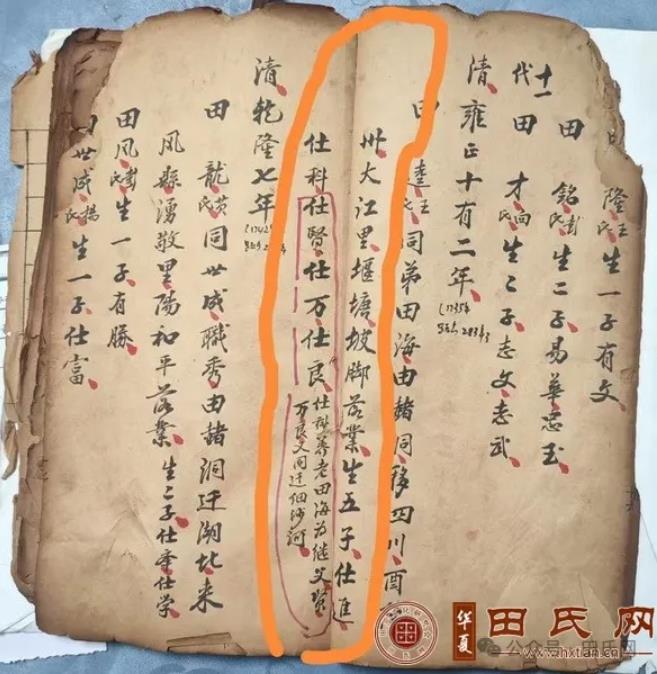 隆王氏生一子有文
十一代
田銘彭氏生二子易華忠玉
田才向氏生二子志文志武
清雍正十有二年
1735年
田逵王氏同弟田海由赭洞移四川酉
州大江里堰塘坡脚落業生五子仕進
仕科仕賢仕万仕良
仕科养老田海为继父贤
万良又同迁细沙河
清乾隆七年
田龍黄氏同世成職秀由赭洞迁湖北来
凤縣湧敬里陽和平落業生二子仕奉仕学
田凤彭氏生一子有勝
田世成楊氏生一子仕富
华夏
田氏网
www.hxtian.cn
公众号
田氏网